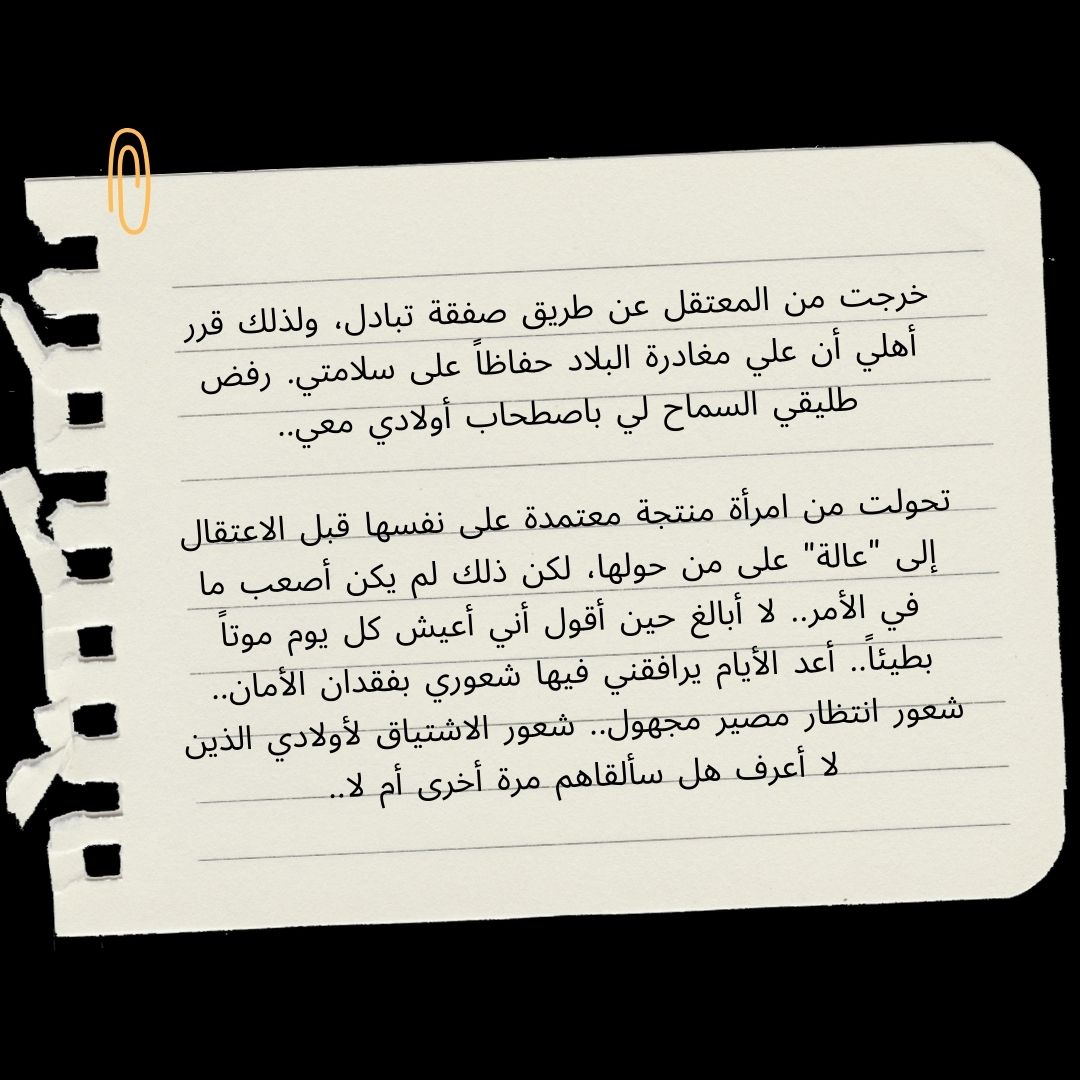 خرجت من المعتقل عن طريق صفقة تبادل، ولذلك قرر
أهلي أن علي مغادرة البلاد حفاظاً على سلامتي. رفض
طليقي السماح لي باصطحاب أولادي معي..
تحولت من امرأة منتجة معتمدة على نفسها قبل الاعتقال
إلى "عالة" على من حولها، لكن ذلك لم يكن أصعب ما
في الأمر.. لا أبالغ حين أقول أني أعيش كل يوم موتاً
بطيئاً.. أعد الأيام يرافقني فيها شعوري بفقدان الأمان..
شعور انتظار مصير مجهول.. شعور الاشتياق لأولادي الذين
لا أعرف هل سألقاهم مرة أخرى أم لا..